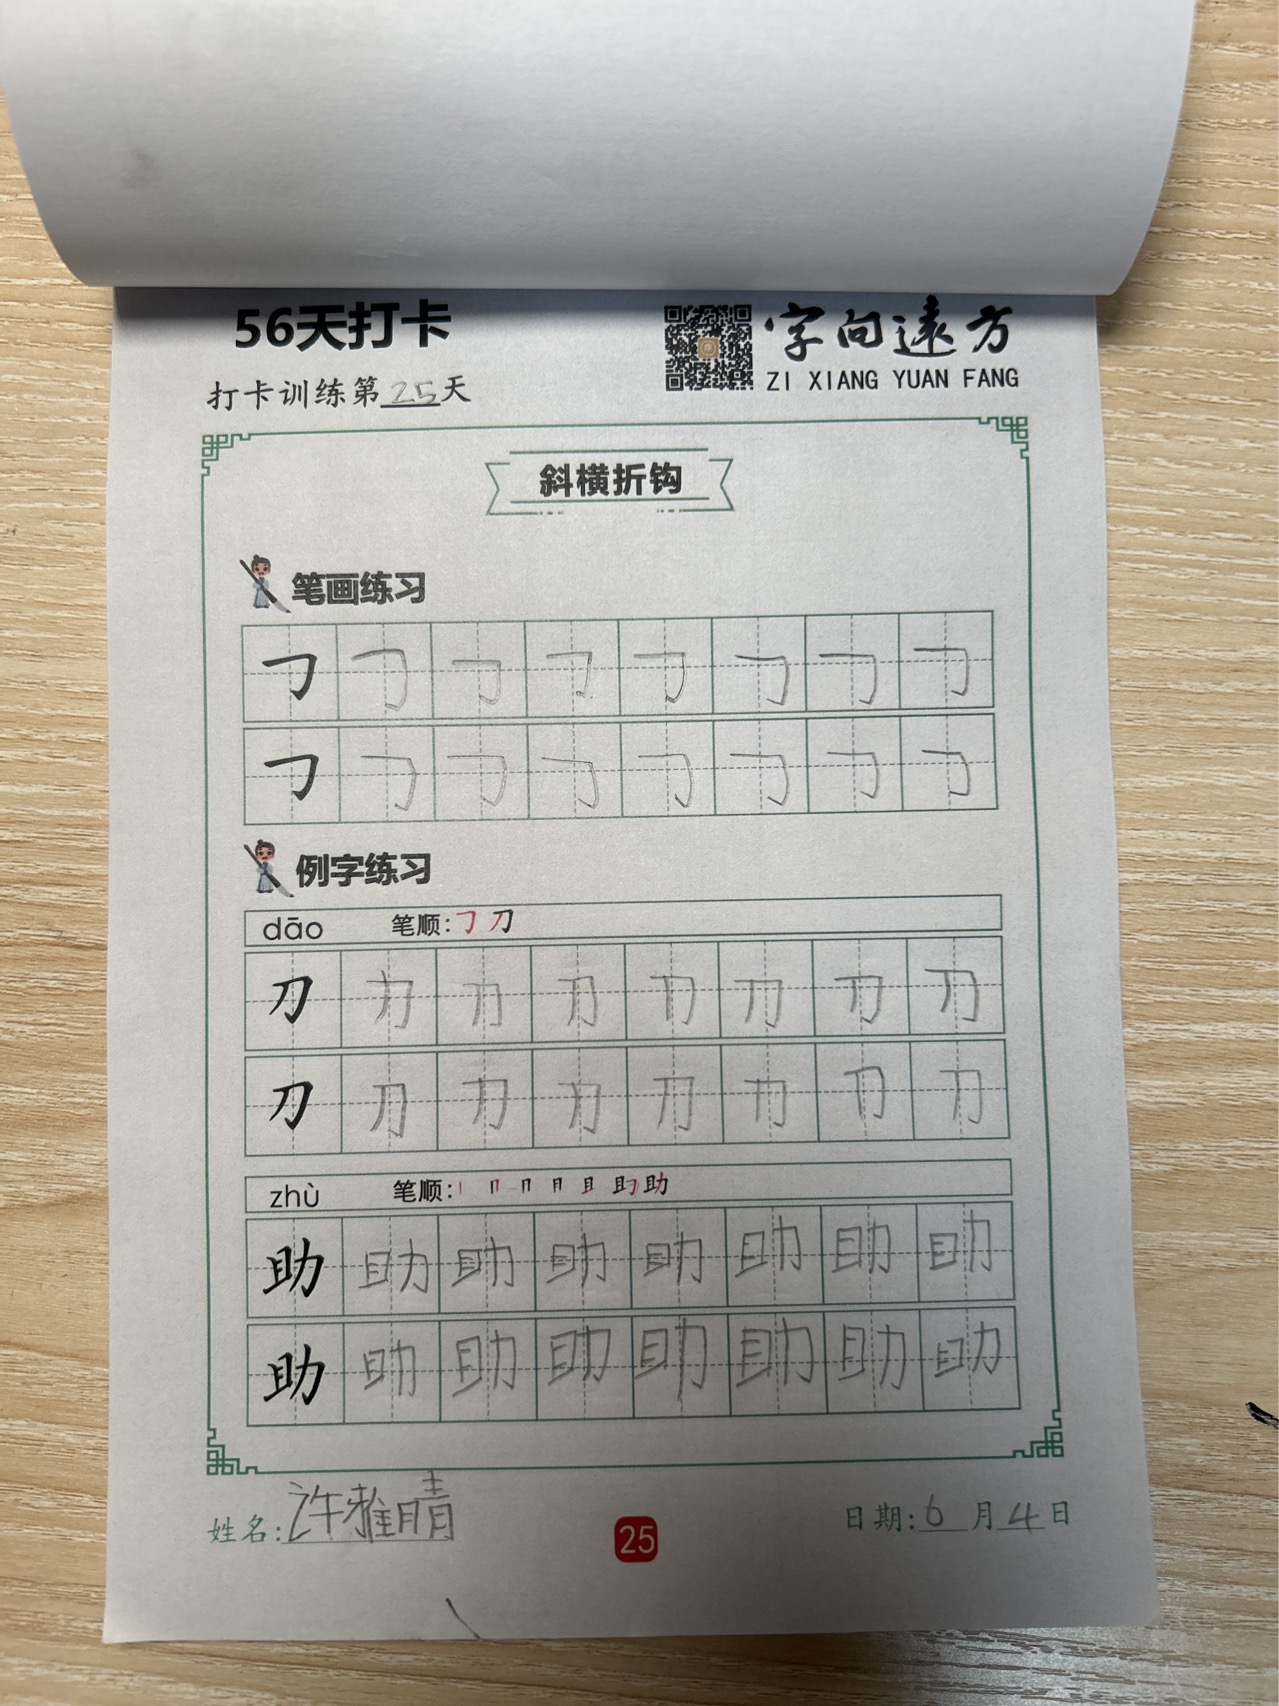 56天打卡
字向远方
ZI XIANG YUAN FANG
打卡训练第25天
斜横折钩
笔画练习
㇆ ㇆ ㇆ ㇆ ㇆ ㇆ ㇆ ㇆
㇆ ㇆ ㇆ ㇆ ㇆ ㇆ ㇆ ㇆
例字练习
dāo 笔顺:㇆ 刀
刀 刀 刀 刀 刀 刀 刀 刀
刀 刀 刀 刀 刀 刀 刀 刀
zhù 笔顺:丨 冂 月 且 助
助 助 助 助 助 助 助 助
助 助 助 助 助 助 助 助
姓名:许雅晴
25
日期:6月4日